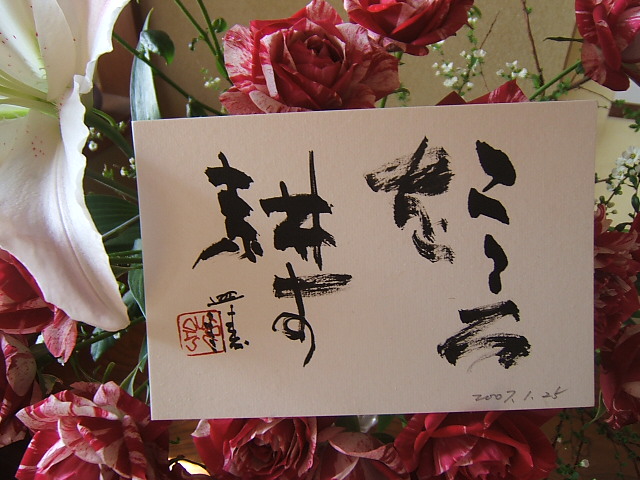 こころ
を
耕す
2007.1.25